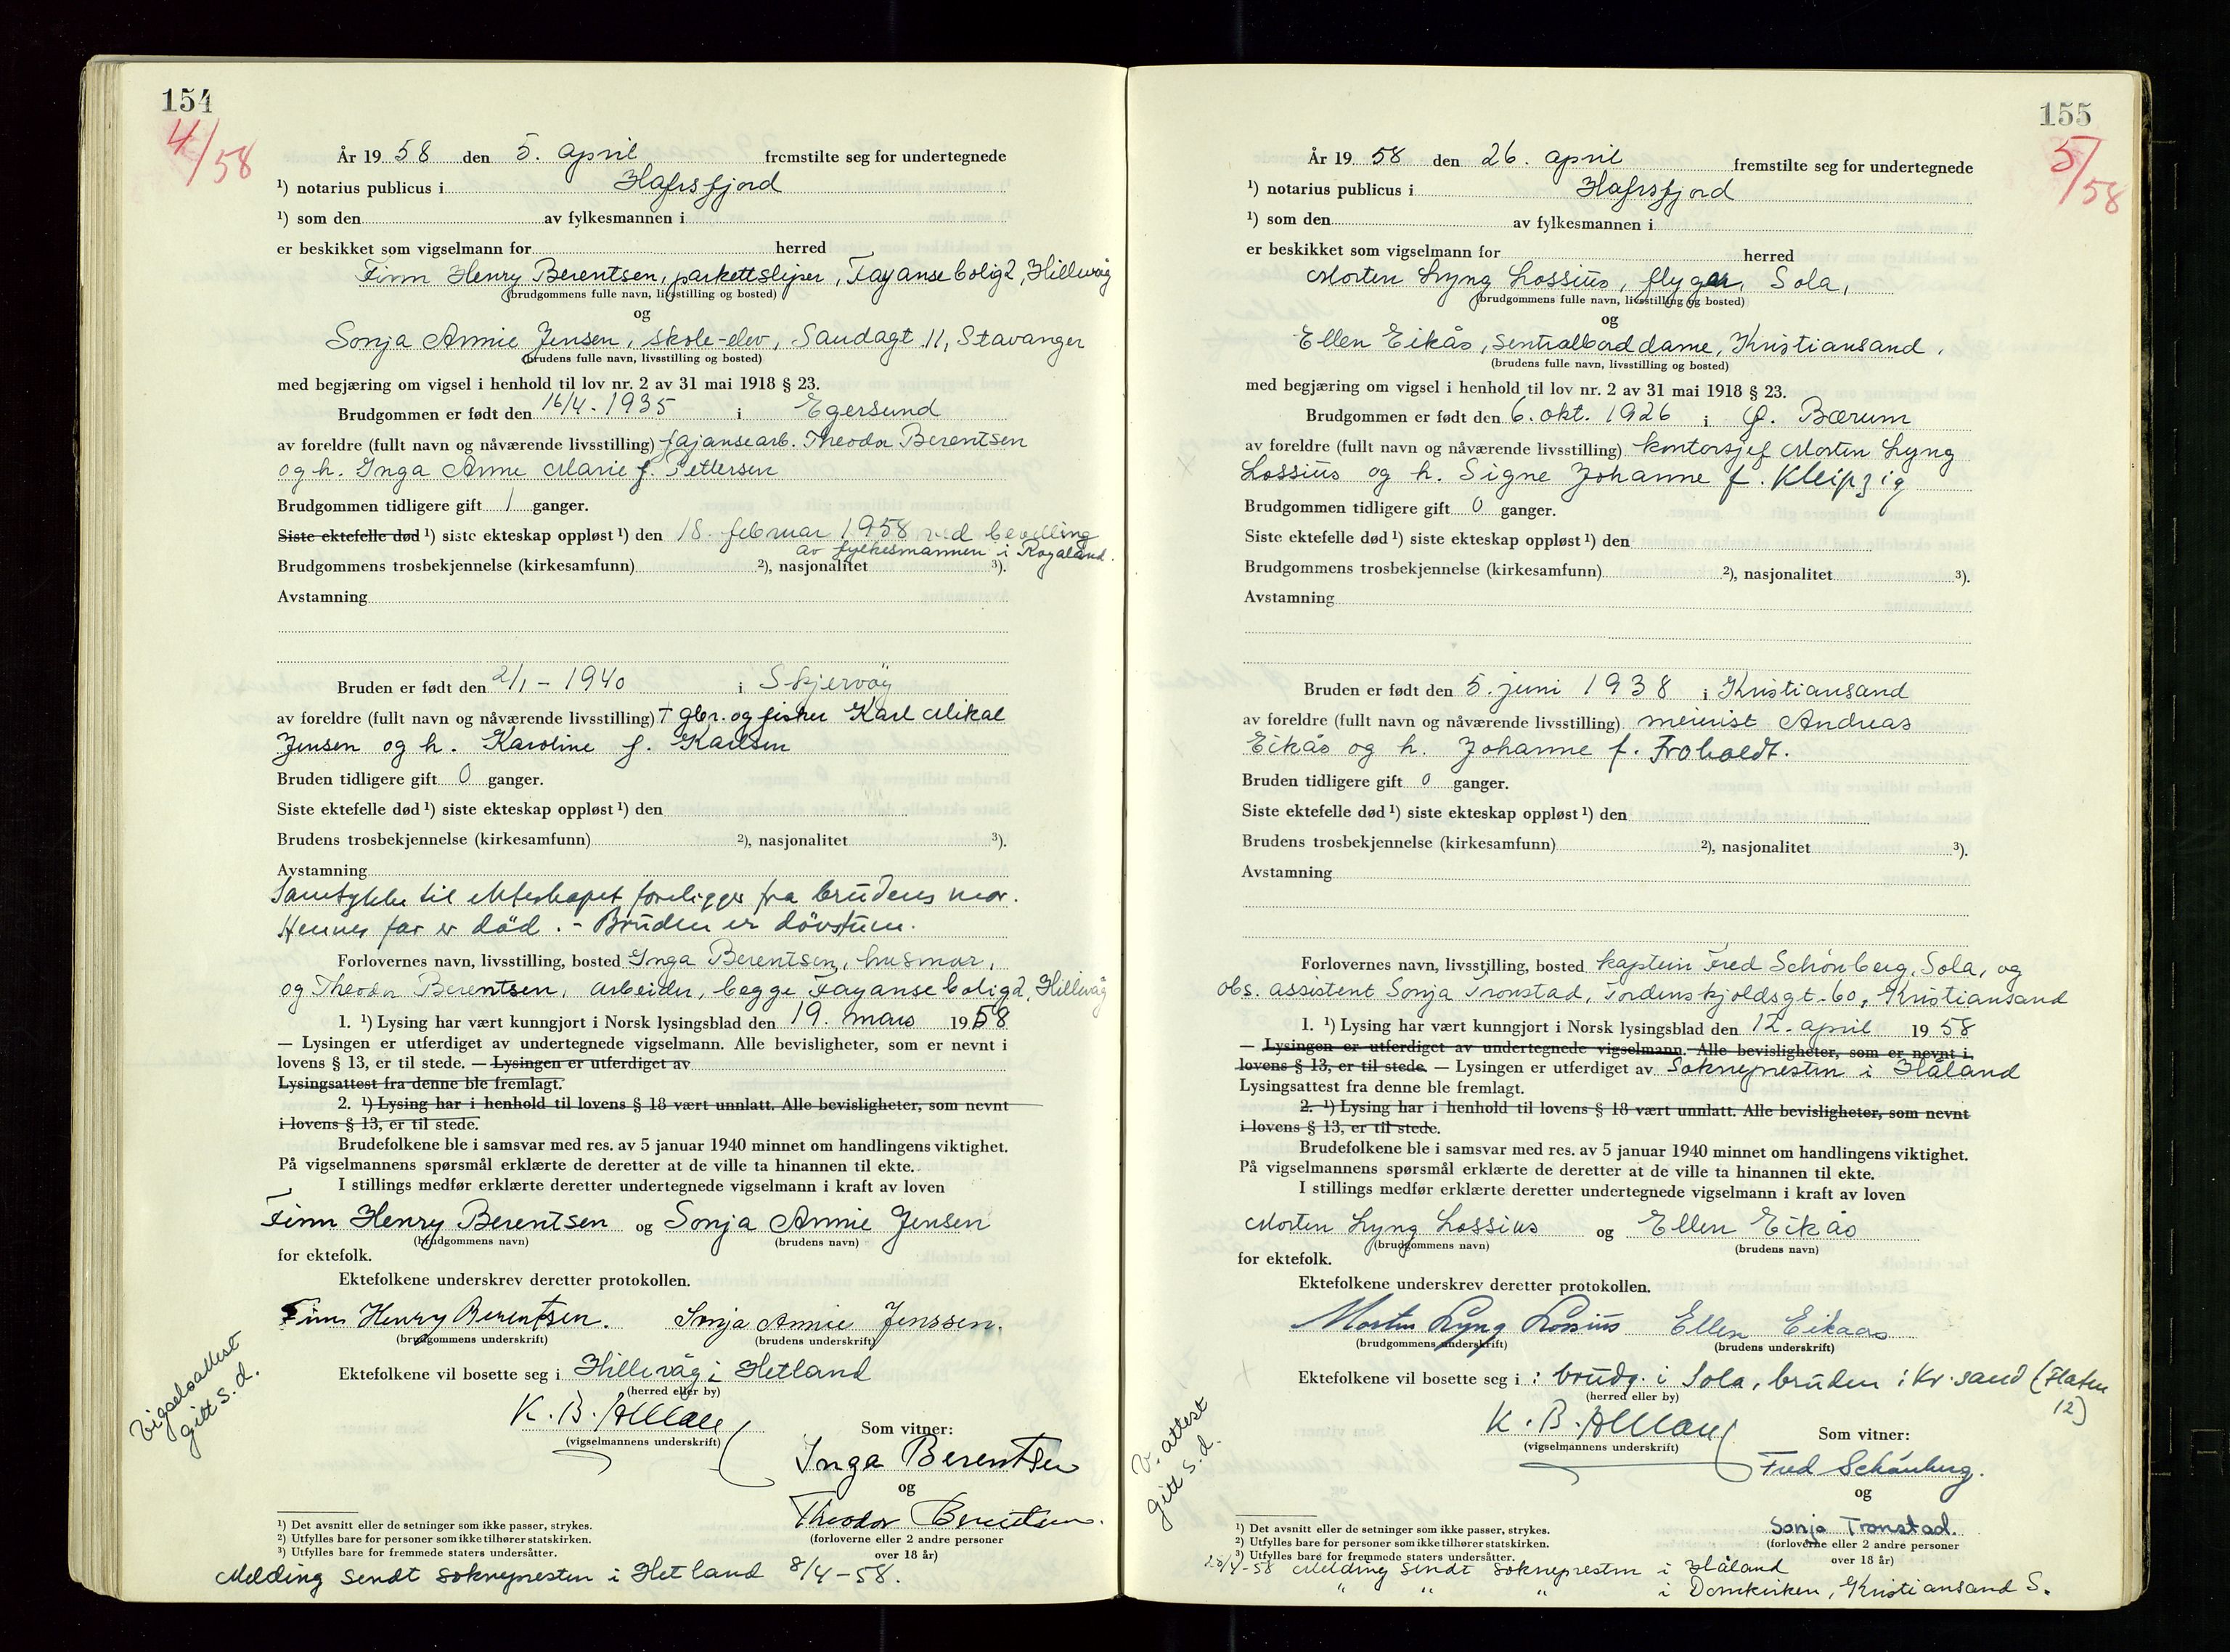 154
4/58
År 19 58 den 5. april fremstilte seg for undertegnede
¹) notarius publicus i Hafrsfjord
¹) som den av fylkesmannen i
er beskikket som vigselmann for herred
Finn Henry Berentsen, parkettsliper, Fayansebolig 2, Hillevåg
(brudgommens fulle navn, livsstilling og bosted)
og
Sonja Annie Jensen, skole-elev, Sandagt. 11, Stavanger
(brudens fulle navn, livsstilling og bosted)
med begjæring om vigsel i henhold til lov nr. 2 av 31 mai 1918 § 23.
Brudgommen er født den 16/4. 1935 - i Egersund
av foreldre (fullt navn og nåværende livsstilling) fajansearb. Theodor Berentsen
og h. Inga Anne Marie f. Pettersen
Brudgommen tidligere gift 1 ganger.
Siste ektefelle død ¹) siste ekteskap oppløst ¹) den 18. februar 1958 ved bevilling
av fylkesmannen i Rogaland.
Brudgommens trosbekjennelse (kirkesamfunn) ²), nasjonalitet ³).
Avstamning
Bruden er født den 2/1 - 1940 i Skjervøy
av foreldre (fullt navn og nåværende livsstilling) † gbr. og fisker Karl Mikal
Jensen og h. Karoline f. Karlsen
Bruden tidligere gift 0 ganger.
Siste ektefelle død ¹) siste ekteskap oppløst ¹) den
Brudens trosbekjennelse (kirkesamfunn) ²), nasjonalitet ³).
Avstamning
Samtykke til ekteskapet foreligger fra brudens mor.
Hennes far er död. - Bruden er dövstum.
Forlovernes navn, livsstilling, bosted Inga Berentsen, husmor,
og Theodor Berentsen, arbeider, begge Fayansebolig 2, Hillevåg
1. ¹) Lysing har vært kunngjort i Norsk lysingsblad den 19. mars 1958
— Lysingen er utferdiget av undertegnede vigselmann. Alle bevisligheter, som er nevnt i
lovens § 13, er til stede. — Lysingen er utferdiget av
Lysingsattest fra denne ble fremlagt.
2. ¹) Lysing har i henhold til lovens § 18 vært unnlatt. Alle bevisligheter, som nevnt
i lovens § 13, er til stede.
Brudefolkene ble i samsvar med res. av 5 januar 1940 minnet om handlingens viktighet.
På vigselmannens spørsmål erklærte de deretter at de ville ta hinannen til ekte.
I stillings medfør erklærte deretter undertegnede vigselmann i kraft av loven
Finn Henry Berentsen og Sonja Annie Jensen
(brudgommens navn) (brudens navn)
for ektefolk.
Ektefolkene underskrev deretter protokollen.
Finn Henry Berentsen. Sonja Annie Jenssen.
(brudgommens underskrift) (brudens underskrift)
Ektefolkene vil bosette seg i Hillevåg i Hetland
(herred eller by)
K. B.
(vigselmannens underskrift)
Som vitner:
Inga Berentsen
og
Theodor Berentsen.
(forloverne eller 2 andre personer
over 18 år)
Vigselsattest
gitt s. d.
¹) Det avsnitt eller de setninger som ikke passer, strykes.
²) Utfylles bare for personer som ikke tilhører statskirken.
³) Utfylles bare for fremmede staters undersåtter.
Melding sendt soknepresten i Hetland 8/4-58.
155
5/58
År 19 58 den 26. april fremstilte seg for undertegnede
¹) notarius publicus i Hafrsfjord
¹) som den av fylkesmannen i
er beskikket som vigselmann for herred
Morten Lyng Lossius, flyger, Sola,
(brudgommens fulle navn, livsstilling og bosted)
og
Ellen Eikås, sentralborddame, Kristiansand.
(brudens fulle navn, livsstilling og bosted)
med begjæring om vigsel i henhold til lov nr. 2 av 31 mai 1918 § 23.
Brudgommen er født den 6. okt. 1926 i Ø. Bærum
av foreldre (fullt navn og nåværende livsstilling) kontorsjef Morten Lyng
Lossius og h. Signe Johanne f. Kleipzig
Brudgommen tidligere gift 0 ganger.
Siste ektefelle død ¹) siste ekteskap oppløst ¹) den
Brudgommens trosbekjennelse (kirkesamfunn) ²), nasjonalitet ³).
Avstamning
Bruden er født den 5. juni 1938 i Kristiansand
av foreldre (fullt navn og nåværende livsstilling) meierist Andreas
Eikås og h. Johanne f. Froholdt.
Bruden tidligere gift 0 ganger.
Siste ektefelle død ¹) siste ekteskap oppløst ¹) den
Brudens trosbekjennelse (kirkesamfunn) ²), nasjonalitet ³).
Avstamning
Forlovernes navn, livsstilling, bosted kaptein Fred Schönberg, Sola, og
obs. assistent Sonja Tronstad, Tordenskjoldsgt. 60, Kristiansand
1. ¹) Lysing har vært kunngjort i Norsk lysingsblad den 12. april 19 58
— Lysingen er utferdiget av undertegnede vigselmann. Alle bevisligheter, som er nevnt i
lovens § 13, er til stede. — Lysingen er utferdiget av Soknepresten i Håland
Lysingsattest fra denne ble fremlagt.
2. ¹) Lysing har i henhold til lovens § 18 vært unnlatt. Alle bevisligheter, som nevnt
i lovens § 13, er til stede.
Brudefolkene ble i samsvar med res. av 5 januar 1940 minnet om handlingens viktighet.
På vigselmannens spørsmål erklærte de deretter at de ville ta hinannen til ekte.
I stillings medfør erklærte deretter undertegnede vigselmann i kraft av loven
Morten Lyng Lossius og Ellen Eikås
(brudgommens navn) (brudens navn)
for ektefolk.
Ektefolkene underskrev deretter protokollen.
Morten Lyng Lossius Ellen Eikaas
(brudgommens underskrift) (brudens underskrift)
Ektefolkene vil bosette seg i : brudg. i Sola, bruden i Kr.sand (Flaten
12)
(herred eller by)
K. B.
(vigselmannens underskrift)
Som vitner:
Fred Schönberg.
og
Sonja Tronstad.
(forloverne eller 2 andre personer
over 18 år)
V. attest
gitt s. d.
¹) Det avsnitt eller de setninger som ikke passer, strykes.
²) Utfylles bare for personer som ikke tilhører statskirken.
³) Utfylles bare for fremmede staters undersåtter.
28/4-58 Melding sendt soknepresten i Håland
" " " i Domkirken, Kristiansand S.